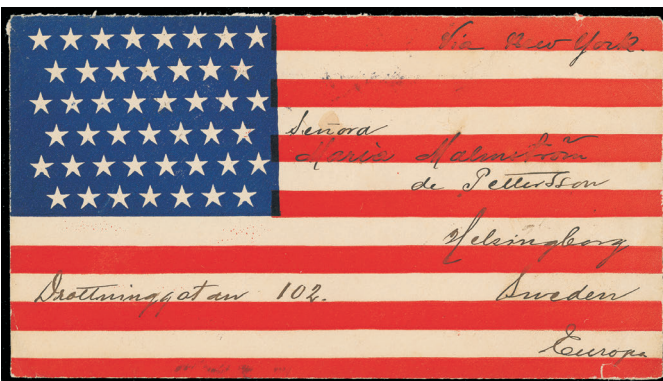 Via New York.
Señora
Maria Malmström
de Pettersson
Helsingborg
Drottninggatan 102.
Sweden
Europa